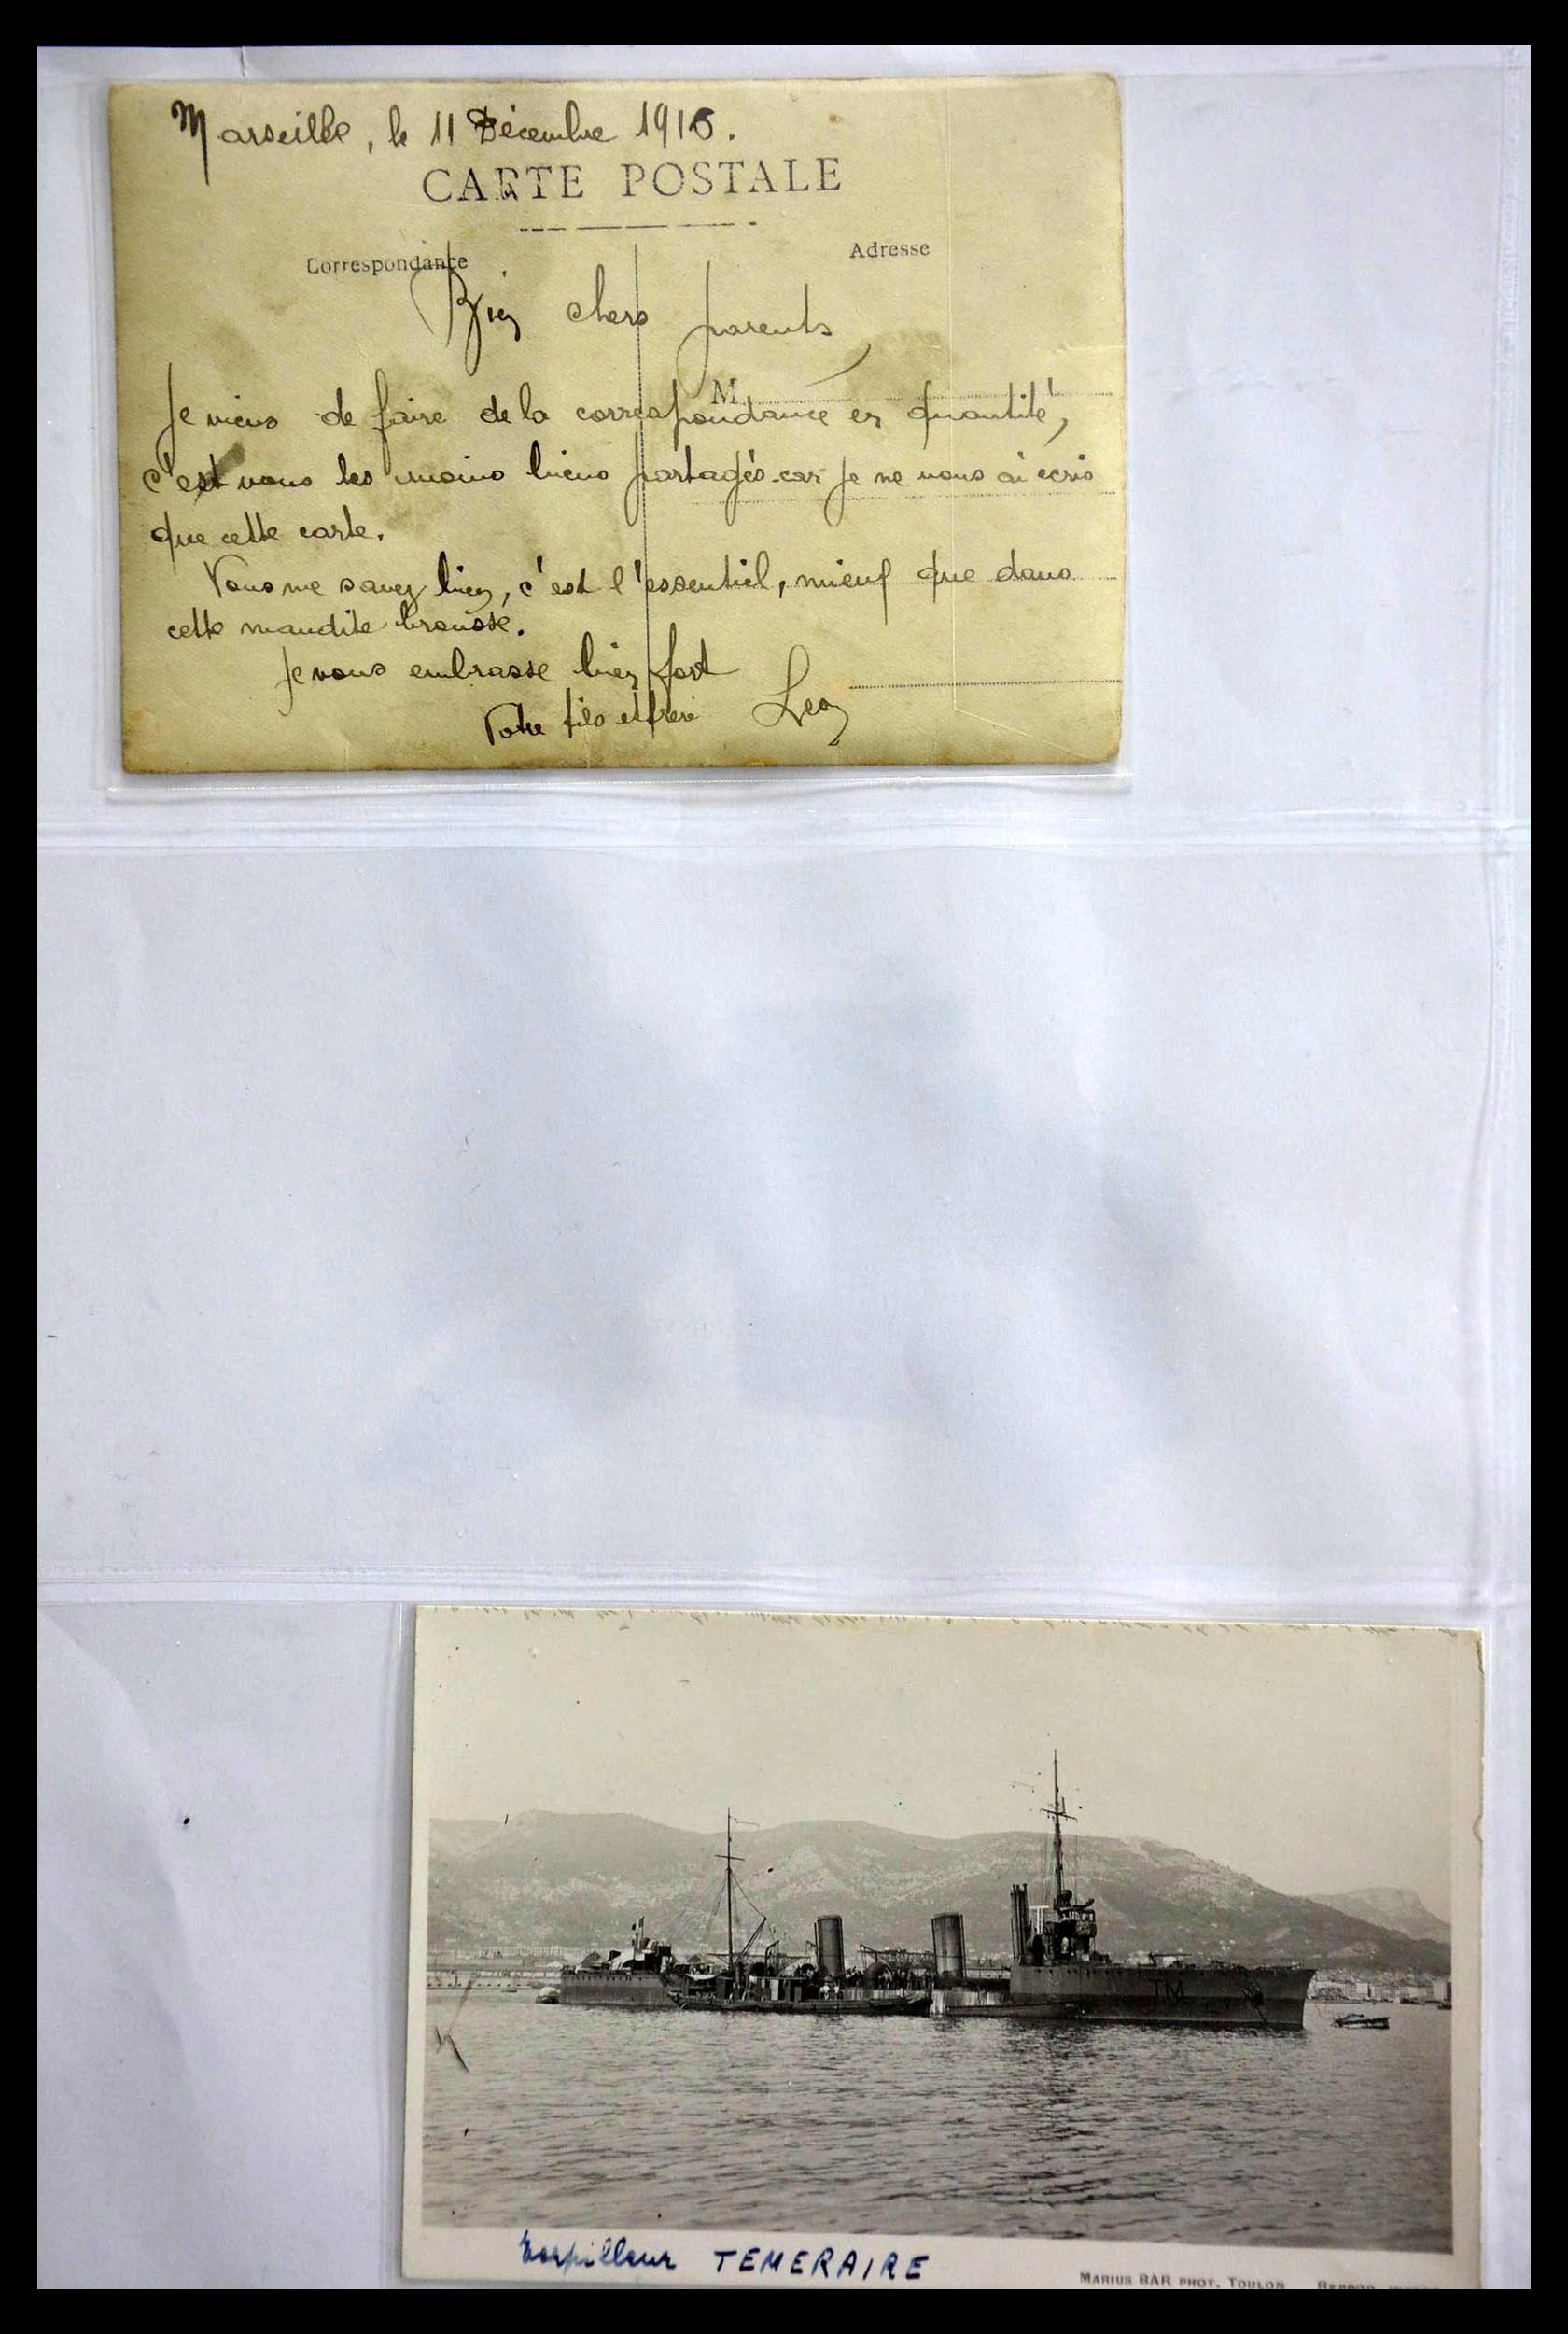 Marseille, le 11 Décembre 1916.
CARTE POSTALE
Correspondance
Adresse
Bien chers parents,
M
Je viens de faire de la correspondance en quantité,
c'est vous les moins biens partagés car je ne vous ai ecris
que cette carte.
Vous me savez bien, c'est l'essentiel, mieux que dans
cette maudite brousse.
Je vous embrasse bien fort
Votre fils et frere Leon
TM
Torpilleur TEMERAIRE
MARIUS BAR PHOT. TOULON